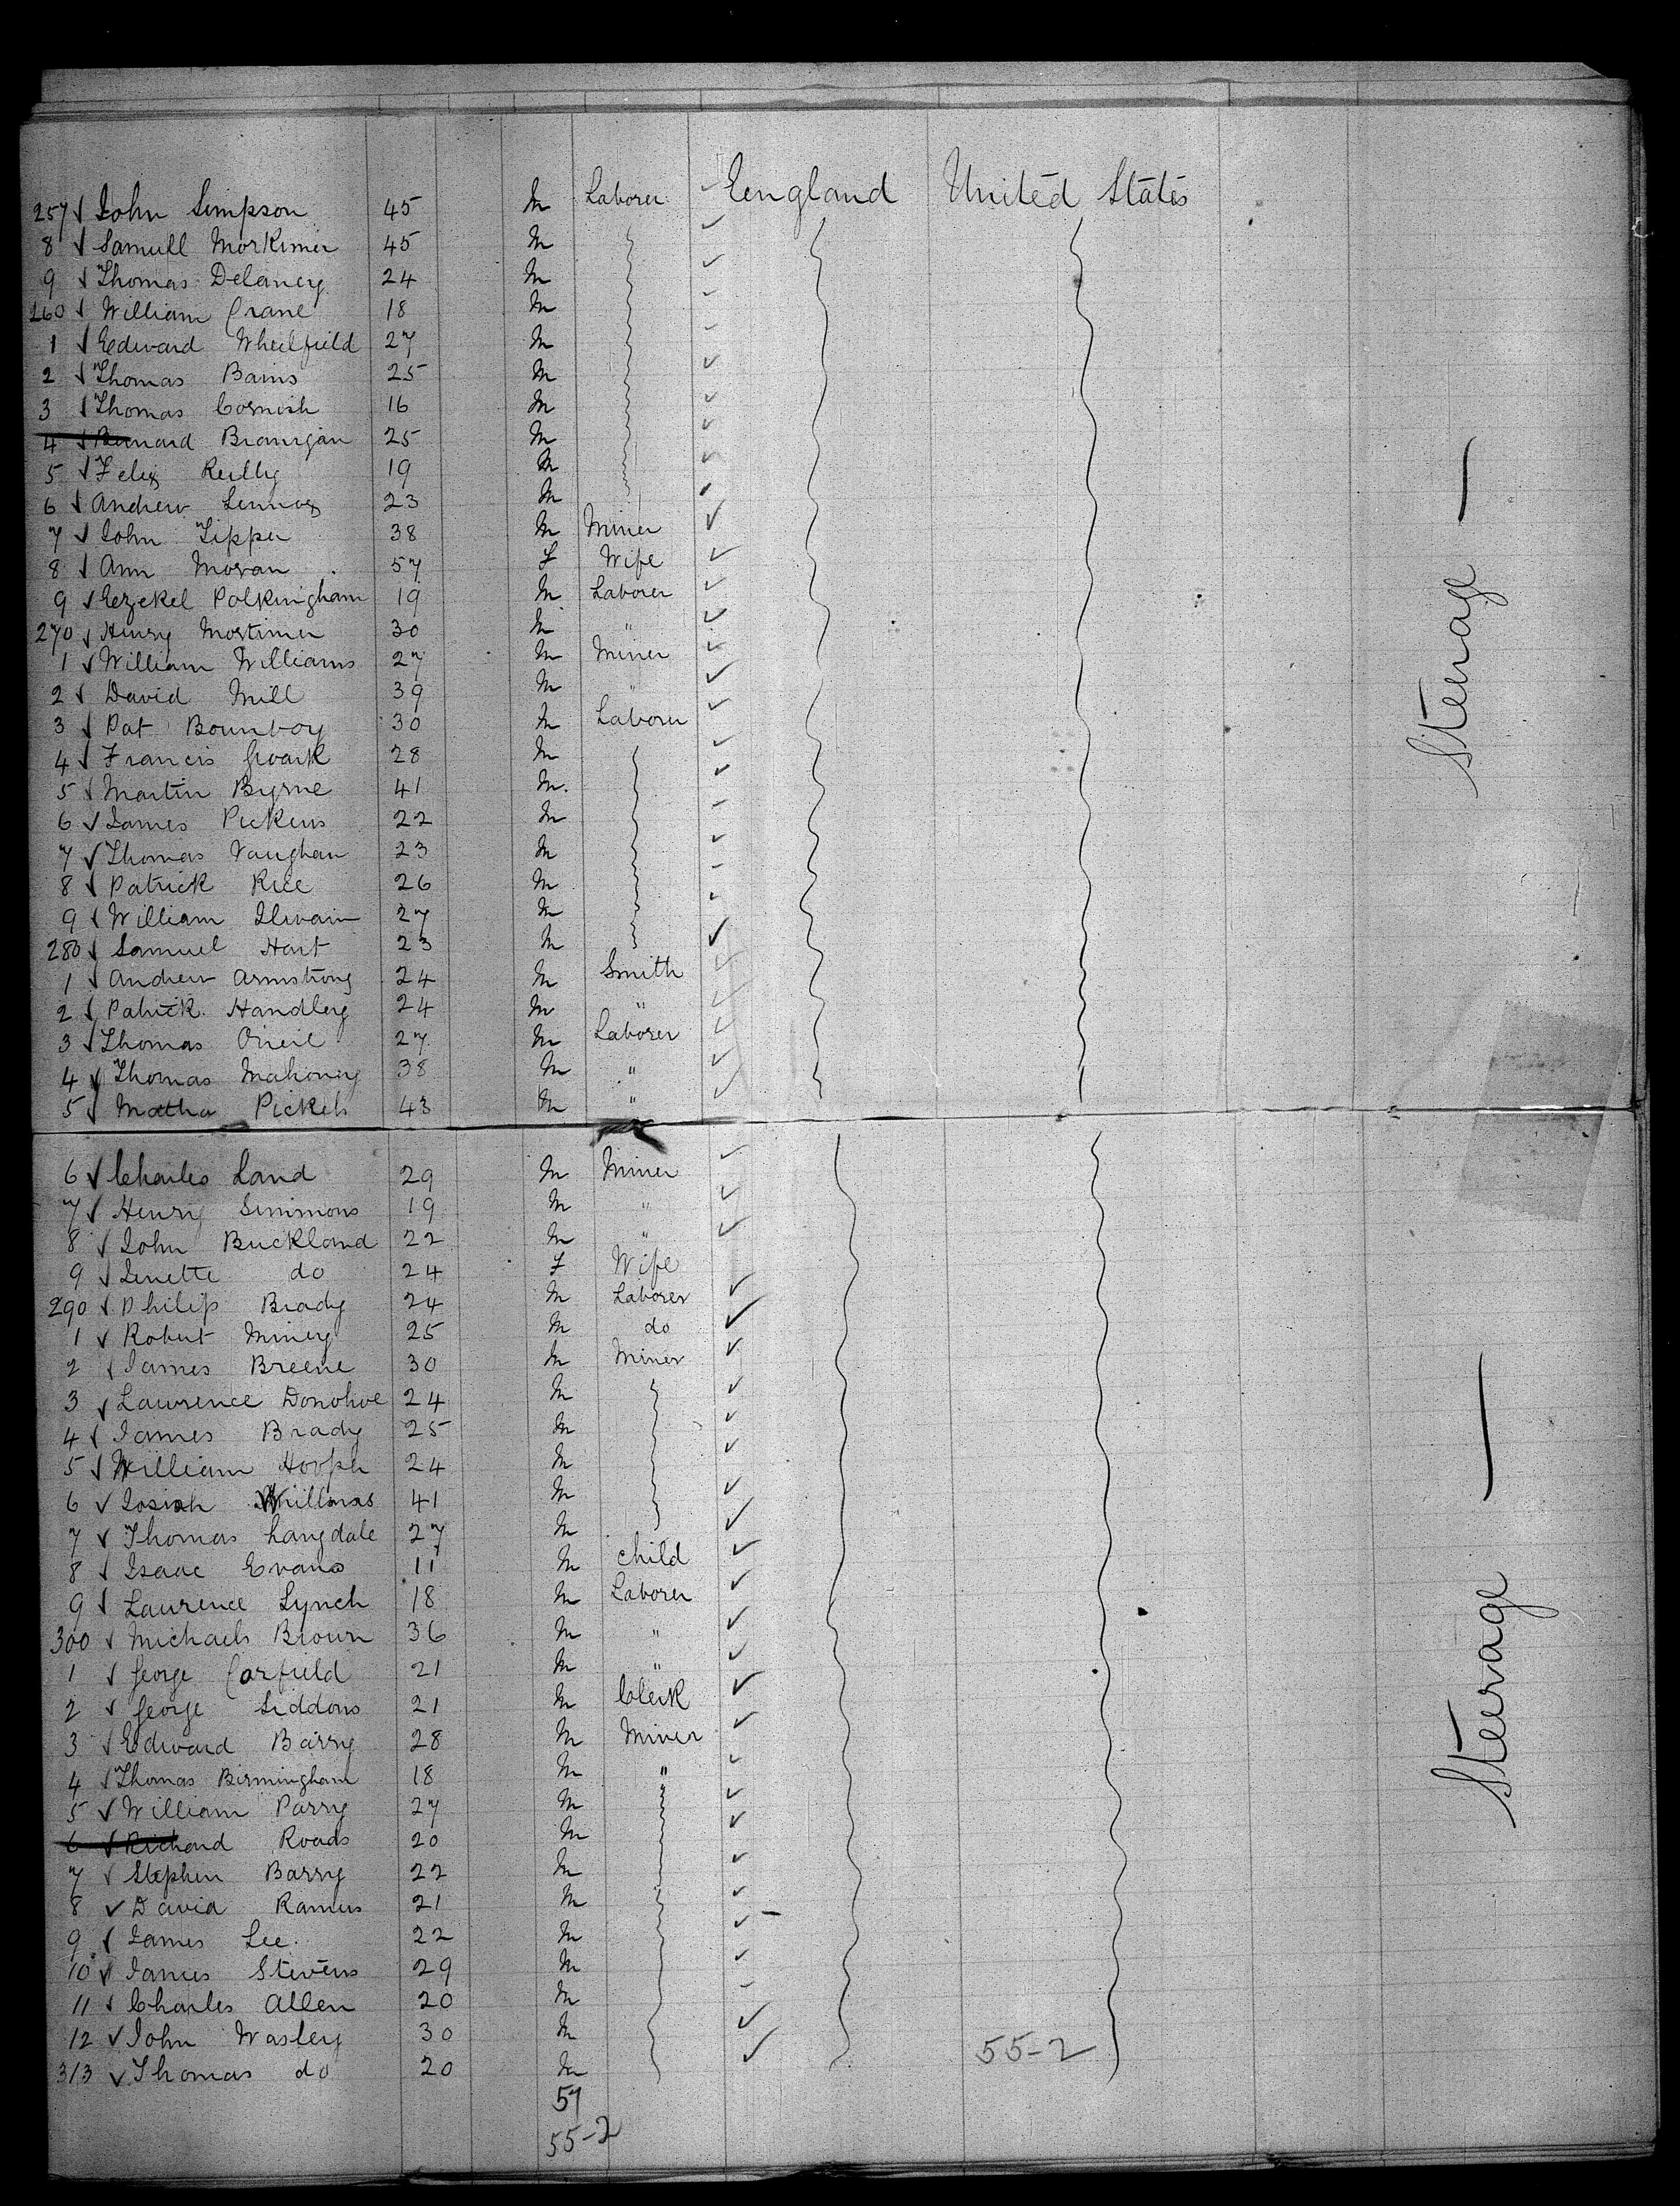 257 John Simpson 45 M Laborer England United States
8 Samuell Morkimer 45 M
9 Thomas Delaney 24 M
260 William Crane 18 M
1 Edward Wheelfield 27 M
2 Thomas Bains 25 M
3 Thomas Cornish 16 M
4 Bernard Branigan 25 M
5 Felix Reilly 19 M
6 Andrew Lennox 23 M
7 John Tipper 38 M Miner
8 Ann Moran 57 F Wife
9 Eezekel Polkingham 19 M Laborer
270 Henry Mortimer 30 M "
1 William Williams 27 M Miner
2 David Mill 39 M "
3 Pat 30 M Laborer
4 Francis 28 M
5 Martin Byrne 41 M
6 James Pickins 22 M
7 Thomas Vaughan 23 M
8 Patrick Rice 26 M
9 William Ilwain 27 M
280 Samuel Hart 23 M
1 Andrew Armstrong 24 M Smith
2 Patrick Handley 24 M "
3 Thomas Oneil 27 M Laborer
4 Thomas Mahoney 38 M "
5 Matha Pickels 43 M "
Steerage —
6 Charles Land 29 M Miner
7 Henry Simmons 19 M "
8 John Buckland 22 M "
9 Jenette do 24 F Wife
290 Philip Brady 24 M Laborer
1 Robert Miney 25 M do
2 James Breene 30 M Miner
3 Lawrence Donohoe 24 M
4 James Brady 25 M
5 William 24 M
6 Josiah 41 M
7 Thomas Langdale 27 M
8 Isaac Evans 11 M child
9 Laurence Lynch 18 M Laborer
300 Michael Brown 36 M "
1 George Corfield 21 M "
2 George Siddons 21 M Clerk
3 Edward Barry 28 M Miner
4 Thomas Birmingham 18 M "
5 William Parry 27 M
6 Richard Roads 20 M
7 Stephen Barry 22 M
8 David Ramus 21 M
9 James Lee 22 M
10 James Stevens 29 M
11 Charles Allen 20 M
12 John Wasley 30 M
313 Thomas do 20 M 55-2
57
55-2
Steerage —